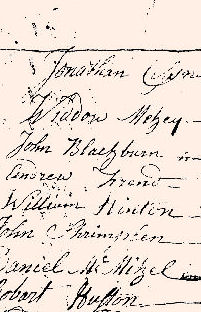 Jonathan
Widdow Mekey
John Blackburn
Andrew Frend
William Hinton
John Shrimpsten
Daniel Mc Mitzel
Robart Huston